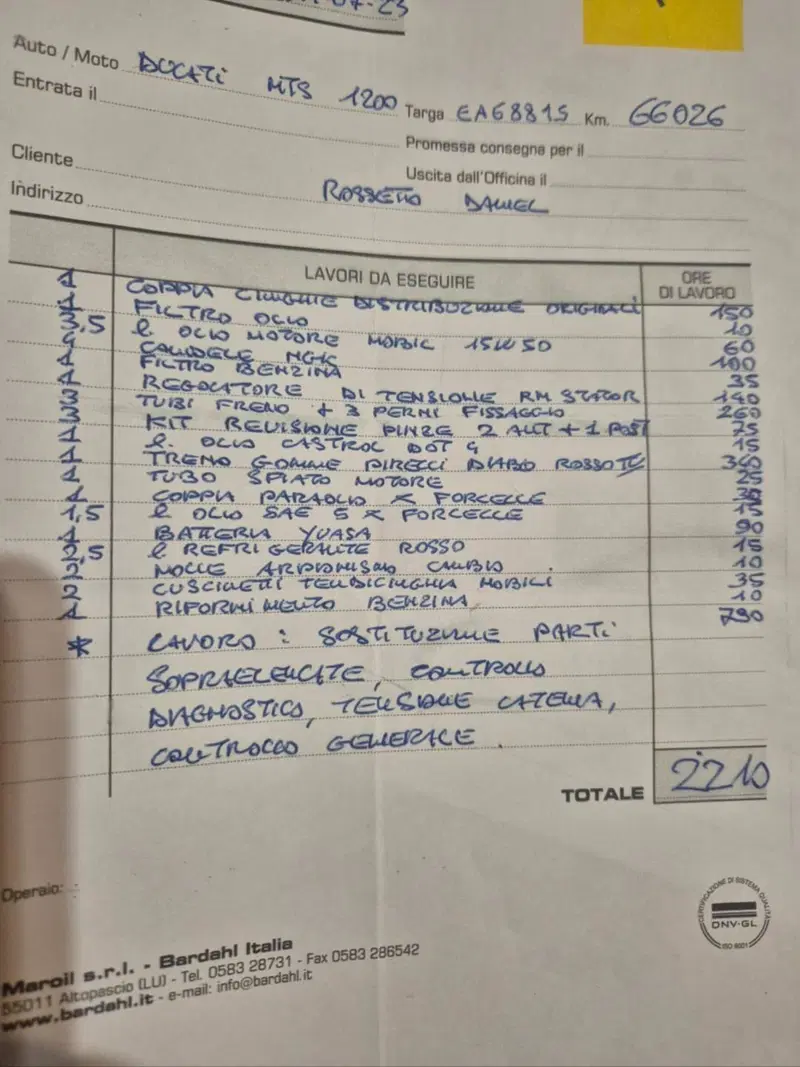 -07-23
Auto / Moto DUCATi MTS 1200 Targa EA68815 Km. 66026
Entrata il
Promessa consegna per il
Cliente
Uscita dall'Officina il
Indirizzo ROSSETTO DANIEL
LAVORI DA ESEGUIRE ORE DI LAVORO
1 COPPIA CINGHIE DISTRIBUZIONE ORIGINALI 150
1 FILTRO OLIO 10
3,5 l OLIO MOTORE MOBIL 15W50 60
CANDELE NGK 100
1 FILTRO BENZINA 35
1 REGOLATORE DI TENSIONE RM STATOR 140
3 TUBI FRENO + 3 PERNI FISSAGGIO 260
3 KIT REVISIONE PINZE 2 ANT + 1 POST 75
1 l. OLIO CASTROL DOT 4 15
1 TRENO GOMME PIRELLI DIABLO ROSSO 340
1 TUBO SFIATO MOTORE 25
1 COPPIA PARAOLIO X FORCELLE 30
1,5 l OLIO SAE 5 X FORCELLE 15
1 BATTERIA YUASA 90
2,5 l REFRIGERANTE ROSSO 15
2 MOLLE ARPIONISMO CAMBIO 10
2 CUSCINETTI TENDICINGHIA MOBILI 35
1 RIFORNIMENTO BENZINA 10
* LAVORO : SOSTITUZIONE PARTI 790
SOPRAELENCATE, CONTROLLO
DIAGNOSTICO, TENSIONE CATENA,
CONTROLLO GENERALE.
TOTALE 2210
Operaio:
CERTIFICAZIONE DI SISTEMA QUALITÀ
DNV·GL
ISO 9001
Maroil s.r.l. - Bardahl Italia
55011 Altopascio (LU) - Tel. 0583 28731 - Fax 0583 286542
www.bardahl.it - e-mail: info@bardahl.it